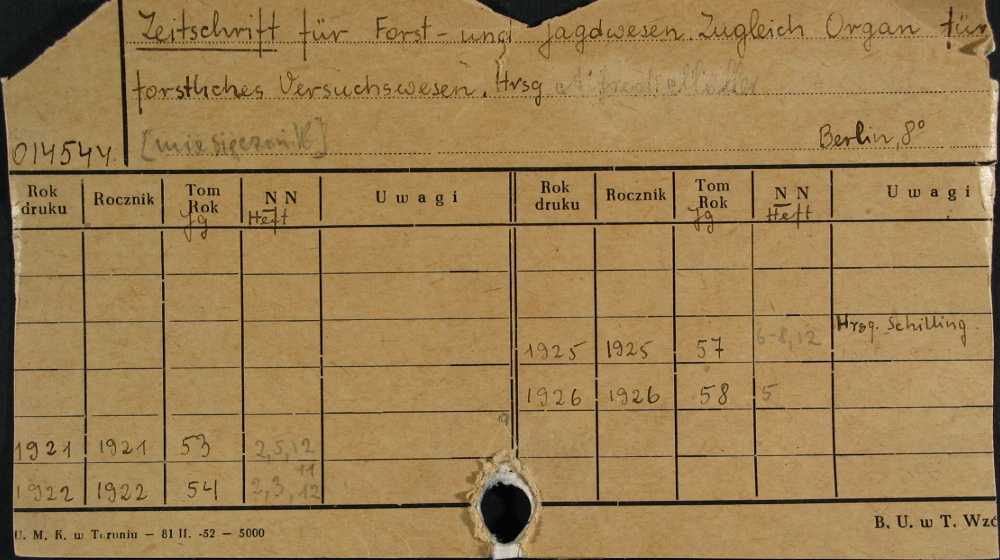 Zeitschrift für Forst- und Jagdwesen. Zugleich Organ für
forstliches Versuchswesen. Hrsg
[miesięcznik]
Berlin, 8°
014544
Rok druku Rocznik Tom Rok Jg NN Heft Uwagi Rok druku Rocznik Tom Rok Jg NN Heft Uwagi
Hrsg. Schilling
1925 1925 57 6-8, 12
1926 1926 58 5
1921 1921 53 2, 5, 12
11
1922 1922 54 2, 3, 12
U. M. K. w Toruniu — 81 II. -52 — 5000
B. U. w T. Wzó